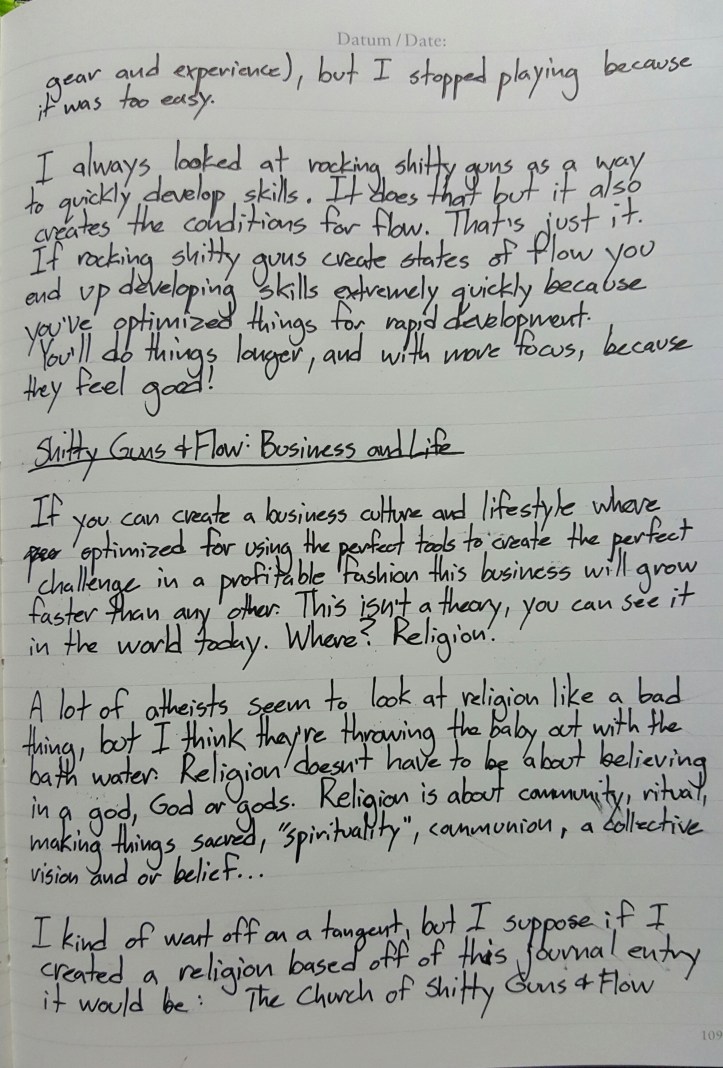 Datum / Date:
gear and experience), but I stopped playing because
it was too easy.
I always looked at rocking shitty guns as a way
to quickly develop skills. It does that but it also
creates the conditions for flow. That's just it.
If rocking shitty guns create states of flow you
end up developing skills extremely quickly because
you've optimized things for rapid development.
You'll do things longer, and with more focus, because
they feel good!
Shitty Guns & Flow: Business and Life
If you can create a business culture and lifestyle where
optimized for using the perfect tools to create the perfect
challenge in a profitable fashion this business will grow
faster than any other. This isn't a theory, you can see it
in the world today. Where? Religion.
A lot of atheists seem to look at religion like a bad
thing, but I think they're throwing the baby out with the
bath water. Religion doesn't have to be about believing
in a god, God or gods. Religion is about community, ritual,
making things sacred, "spirituality", communion, a collective
vision and or belief...
I kind of went off on a tangent, but I suppose if I
created a religion based off of this journal entry
it would be: The Church of Shitty Guns & Flow
109